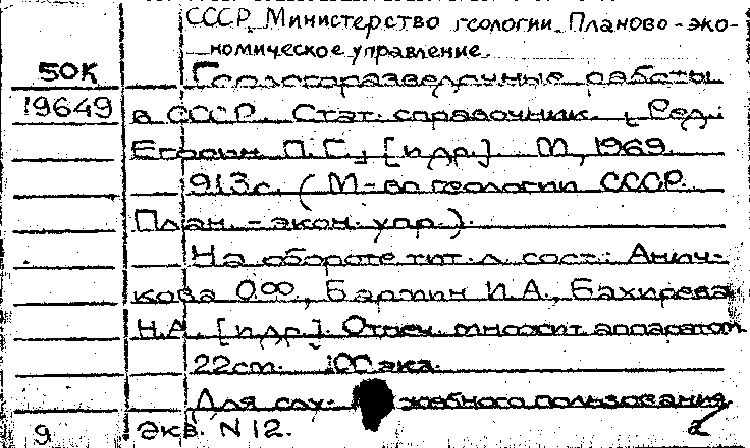 СССР. Министерство геологии. Планово-эко-
номическое управление.
50К
Геологоразведочные работы
19649
в СССР. Стат. справочник. Ред.:
П.Г., [и др.] М, 1969.
913с. (М-во геологии СССР.
План.-экон. упр.).
На обороте тит. л. сост.: Анич-
кова О.Ф., Бармин И.А., Бахирева
Н.А. [и др.]. Отпеч. множит. аппаратом
22см. 100 экз.
Для слу- жебного пользования
9 Экз. N 12.